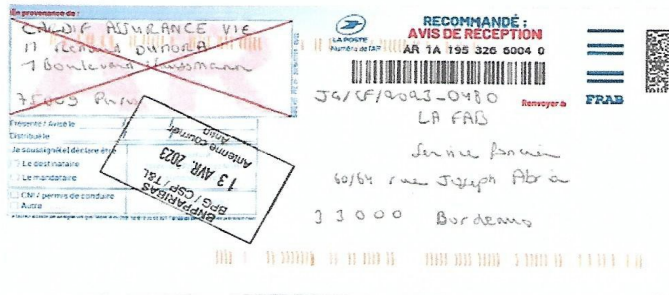 En provenance de :
CARDIF ASSURANCE VIE
M Renaud DUMORA
1 Boulevard Haussmann
75009 Paris
Présenté / Avisé le
Distribué le
Je soussigné(e) déclare être
Le destinataire
Le mandataire
CNI / permis de conduire
Autre
BNP PARIBAS
BPG / CSP / T&L
13 AVR. 2023
Antenne courrier
LA POSTE
Numéro de l'AR
RECOMMANDÉ :
AVIS DE RÉCEPTION
AR 1A 195 326 6004 0
Renvoyer à
FRAB
JG/CF/2023-0480
LA FAB
Service foncier
60/64 rue Joseph Abria
33000 Bordeaux